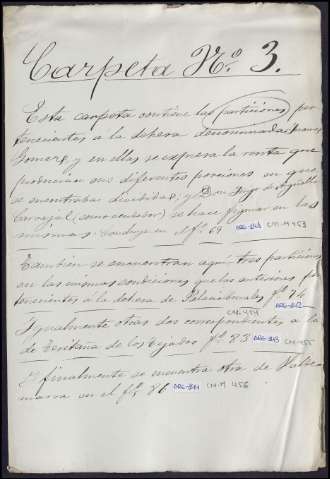 Carpeta Nº 3.
Esta carpeta contiene las particiones per
tenecientes á la dehesa denominada
Gomez, y en ellas se expresa la renta que
producian sus diferentes porciones en que
se encontraba dividida; y Don de Argüello
Carvajal (como acreedor) se hace figurar en las
mismas. Concluye en el fº 69 CM.M 453
Tambien se encuentran aqui tres particiones
en las mismas condiciones que las anteriores per
tenecientes á la dehesa de fº 74
CM.454
Igualmente otras dos correspondientes a la
de de los Tejados fº 83 CM.455
Y finalmente se encuentra otra de
en el fº 86 CM.M 456